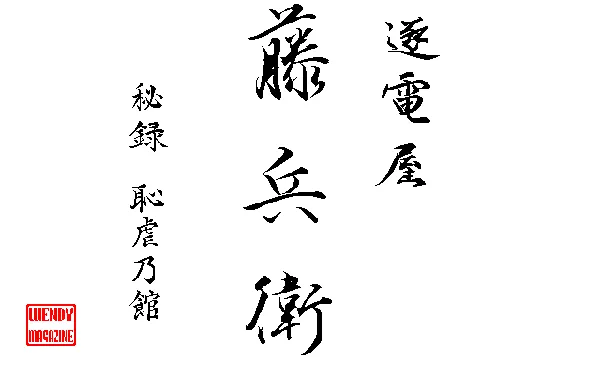 逐電屋
藤兵衛
秘録　恥虐乃館
WENDY
MAGAZINE